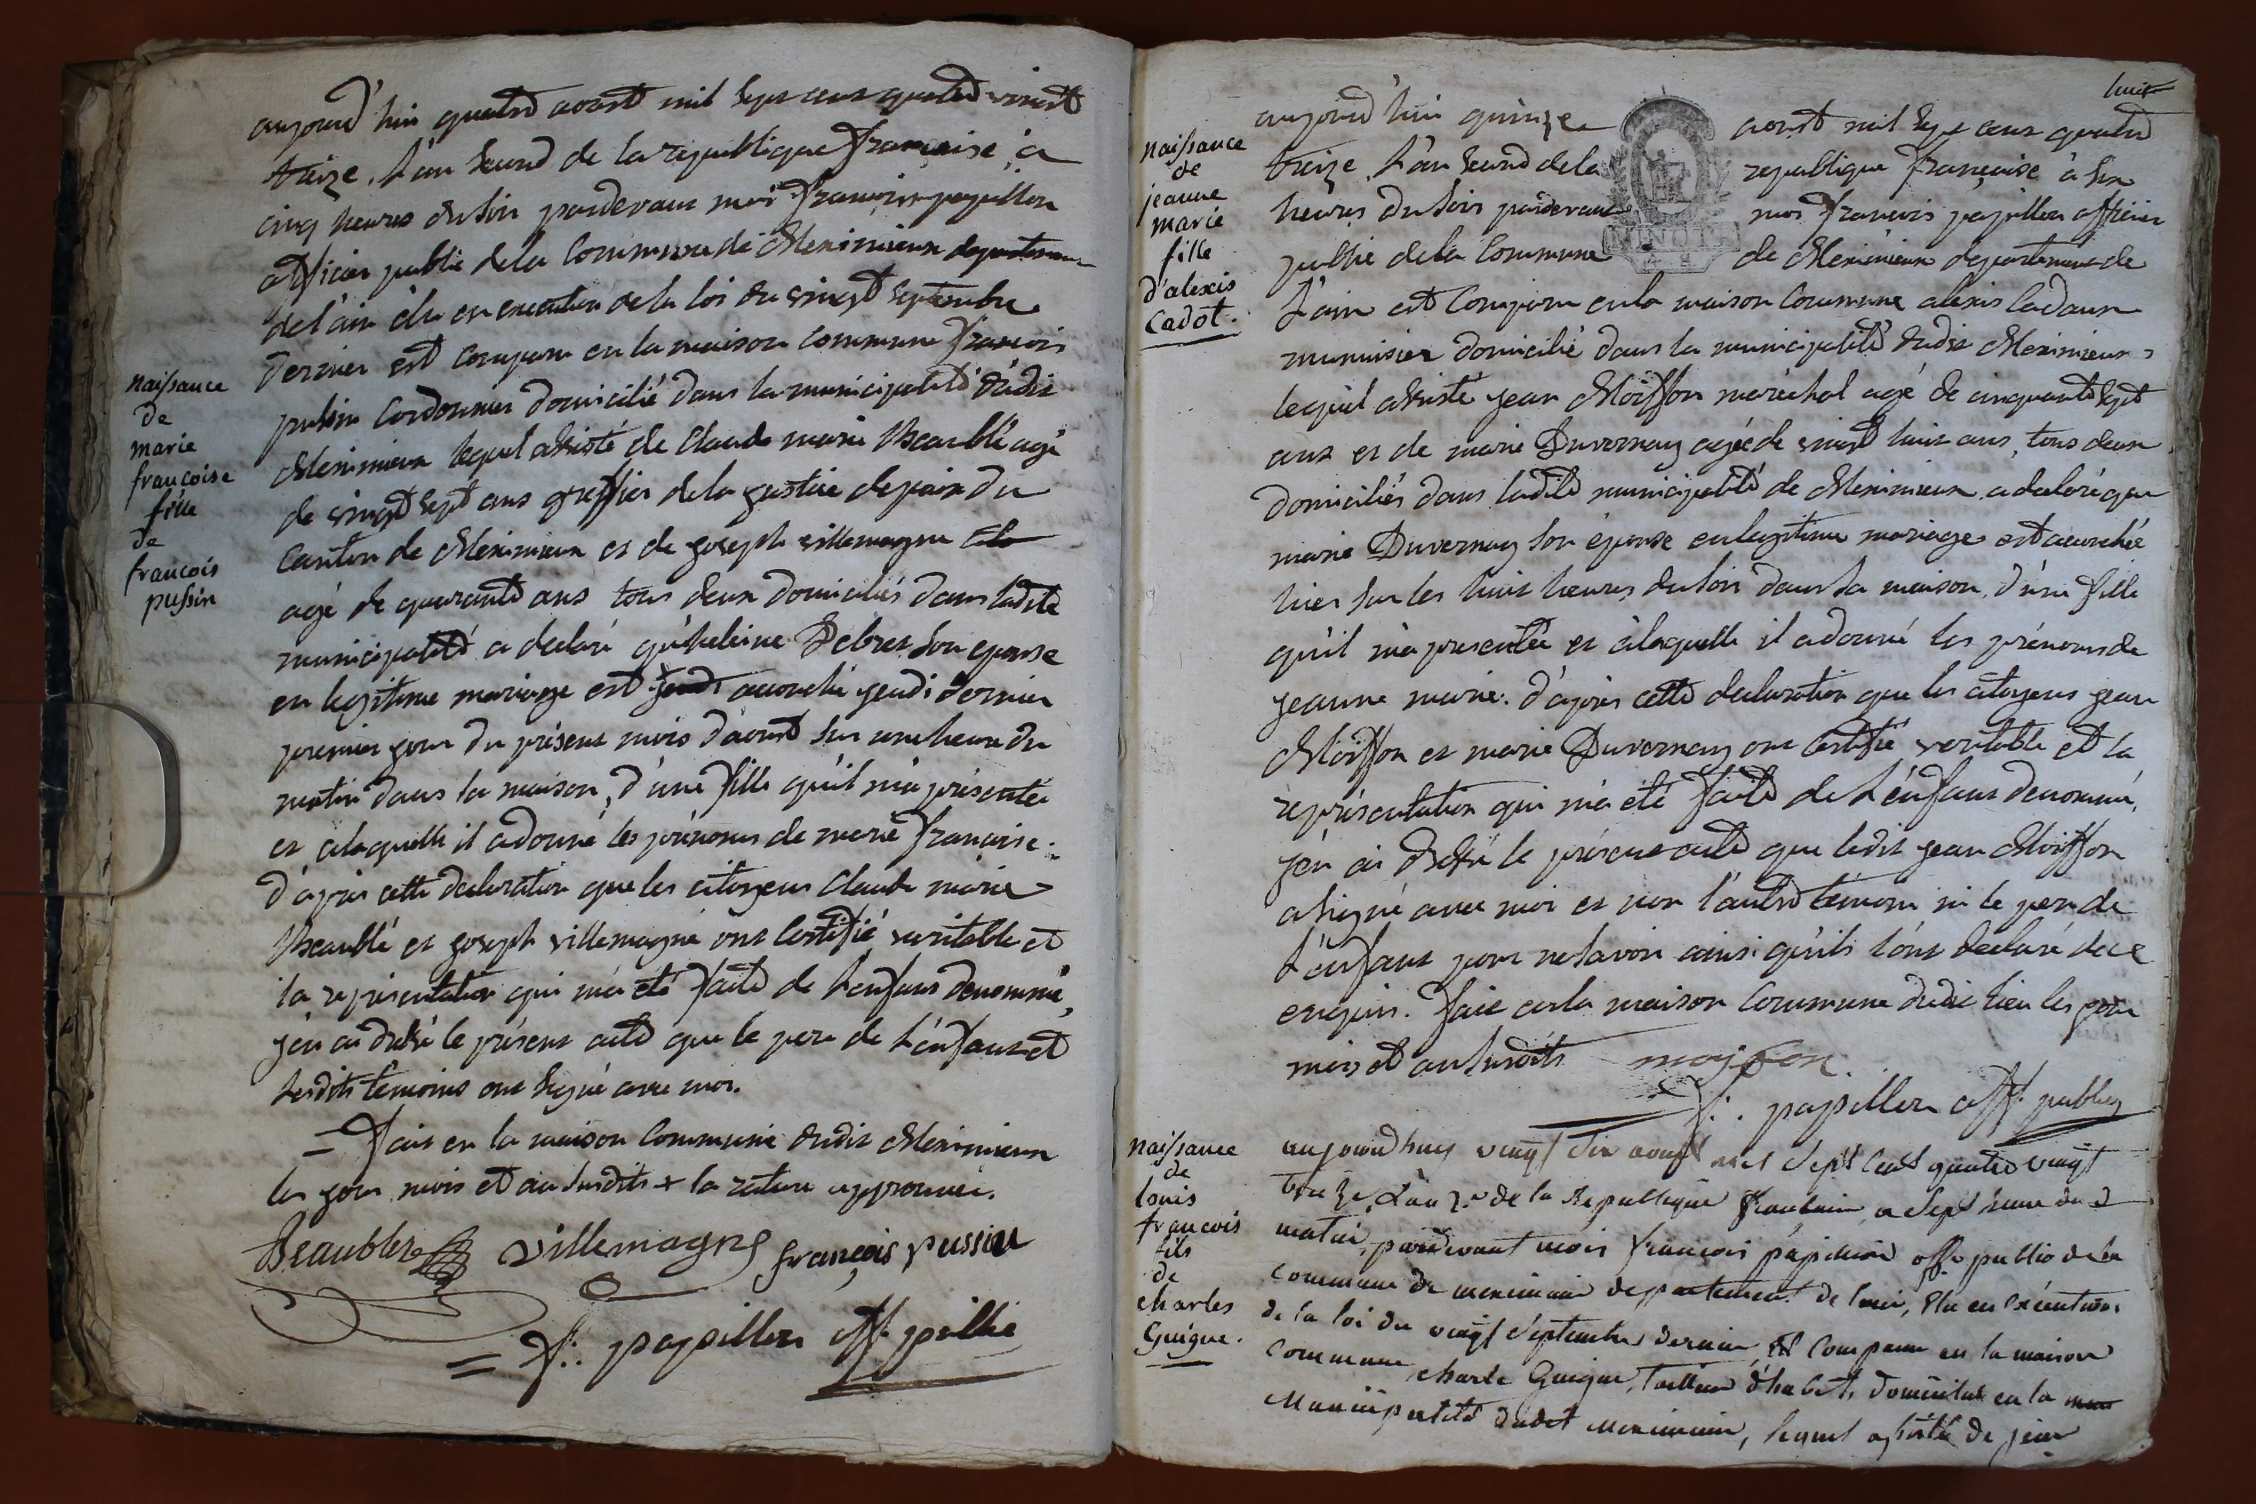 aujourd'hui quatre aoust mil sept cent quatre vingt
treize, l'an second de la republique francaise, a
cinq heures du soir pardevant moi francois papillon
officier public de la Commune de Meximieux departement
de l'ain élu en execution de la loi du vingt septembre
dernier est comparu en la maison commune francois
naissance
de
marie
francoise
fille
de
francois
pussin
pussin Cordonnier domicilié dans la municipalité dudit
Meximieux lequel assisté de Claude marie Beaublé agé
de vingt sept ans greffier de la justice de paix du
Canton de Meximieux et de joseph villemagne
agé de quarante ans tous deux domiciliés dans ladite
municipalité a declaré qu'heleine Debres son epouse
en legitime mariage est jeudi accouché jeudi dernier
premier jour du présent mois d'aoust sur une heure du
matin dans sa maison, d'une fille qu'il m'a présentée
et a laquelle il a donné les prénoms de marie francoise.
d'après cette declaration que les citoyens Claude marie
Beaublé et joseph villemagne ont certifié veritable et
la representation qui m'a eté faite de l'enfant denommé,
j'en ai dressé le présent acte que le pere de l'enfant et
lesdits temoins ont signé avec moi.
= fait en la maison Commune dudit Meximieux
les jour mois et an susdits + la rature approuvée.
Beaublez villemagne françois pussin
= f: papillon off. public
huit
naissance
de
jeanne
marie
fille
d'alexis
Cadot.
aujourd'hui quinze aoust mil sept cent quatre
treize, l'an second de la republique françoise à six
heures du soir pardevant moi francois papillon officier
public de la Commune de Meximieux departement de
L'ain est comparu en la maison Commune alexis
menuisier domicilié dans la municipalité dudit Meximieux
lequel assisté jean Moiffon maréchal agé de cinquante sept
ans et de marie Duvernay agée de vingt huit ans, tous deux
domiciliés dans ladite municipalité de Meximieux a declaré que
marie Duvernay son épouse en legitime mariage est accouchée
hier sur les huit heures du soir dans sa maison, d'une fille
qu'il m'a presentée et a laquelle il a donné les prénoms de
jeanne marie. d'après cette declaration que les citoyens jean
Moiffon et marie Duvernay ont certifié veritable et la
représentation qui m'a eté faite de l'enfant denommé,
j'en ai dressé le présent acte que ledit jean Moiffon
a signé avec moi et non l'autre témoin ni le pere de
l'enfant pour ne savoir ainsi qu'ils l'ont declaré de ce
enquis. fait en la maison Commune dudit lieu les jour
mois et an susdits moiffon.
f: papillon off. public
naissance
de
louis
francois
fils
de
charles
Guigue.
aujourdhuy vingt six aoust mil sept cent quatre vingt
treize, L'an 2e de la Republique francaise, a sept heure du
matin, pardevant moi francois papillion offr public de la
commune de meximieux departement de l'ain, Elu en Exécution
de la loi du vingt septembre dernier, Est comparu en la maison
commune charle Guigue, tailleur d'habit, domicilié en la
Municipalité dudit meximieux, lequel assisté de jean